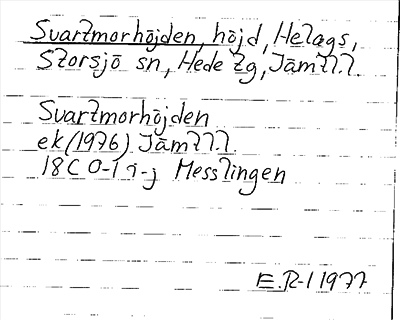 Svartmorhöjden, höjd, Helags,
Storsjö sn, Hede tg, Jämtl.
Svartmorhöjden
ek (1976) Jämtl.
18C 0-1 i-j Messlingen
E.R-l 1977